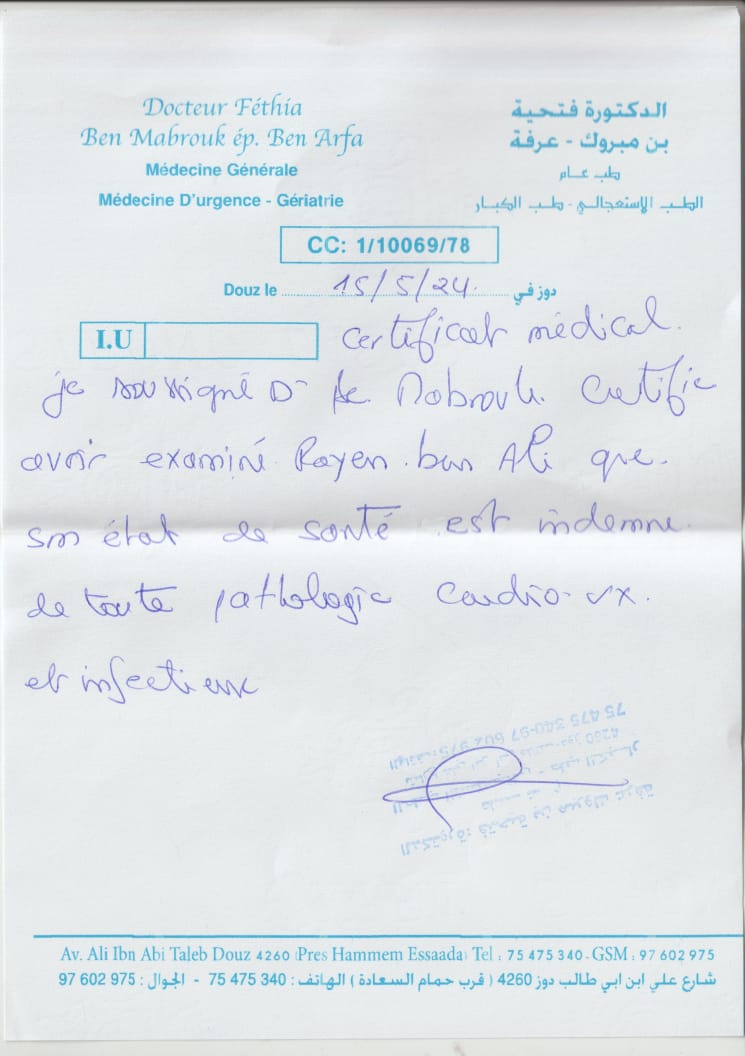 Docteur Féthia
Ben Mabrouk ép. Ben Arfa
Médecine Générale
Médecine D'urgence - Gériatrie
الدكتورة فتحية
بن مبروك - عرفة
طب عام
الطب الإستعجالي - طب الكبار
CC: 1/10069/78
Douz le 15/5/24. دوز في
I.U
Certificat médical.
je soussigné Dr Mabrouk Certifie
avoir examiné Rayen ben Ali que
son état de santé est indemne
de toute pathologie Cardio-vx.
et infectieuse
75 475 340-97 602 975
الدكتورة : فتحية بن مبروك عرفة
Av. Ali Ibn Abi Taleb Douz 4260 (Pres Hammem Essaada) Tel : 75 475 340 - GSM : 97 602 975
شارع علي ابن ابي طالب دوز 4260 ( قرب حمام السعادة ) الهاتف : 340 475 75 - الجوال : 975 602 97